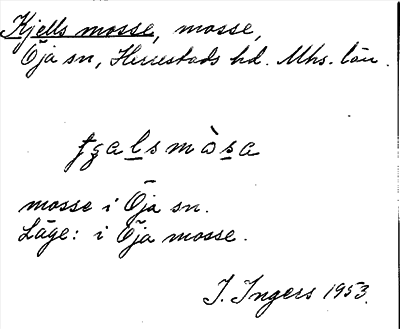 Kjells mosse, mosse,
Öja sn, Herrestads hd. Mhs. län.
mosse i Öja sn.
Läge: i Öja mosse.
I. Ingers 1953.